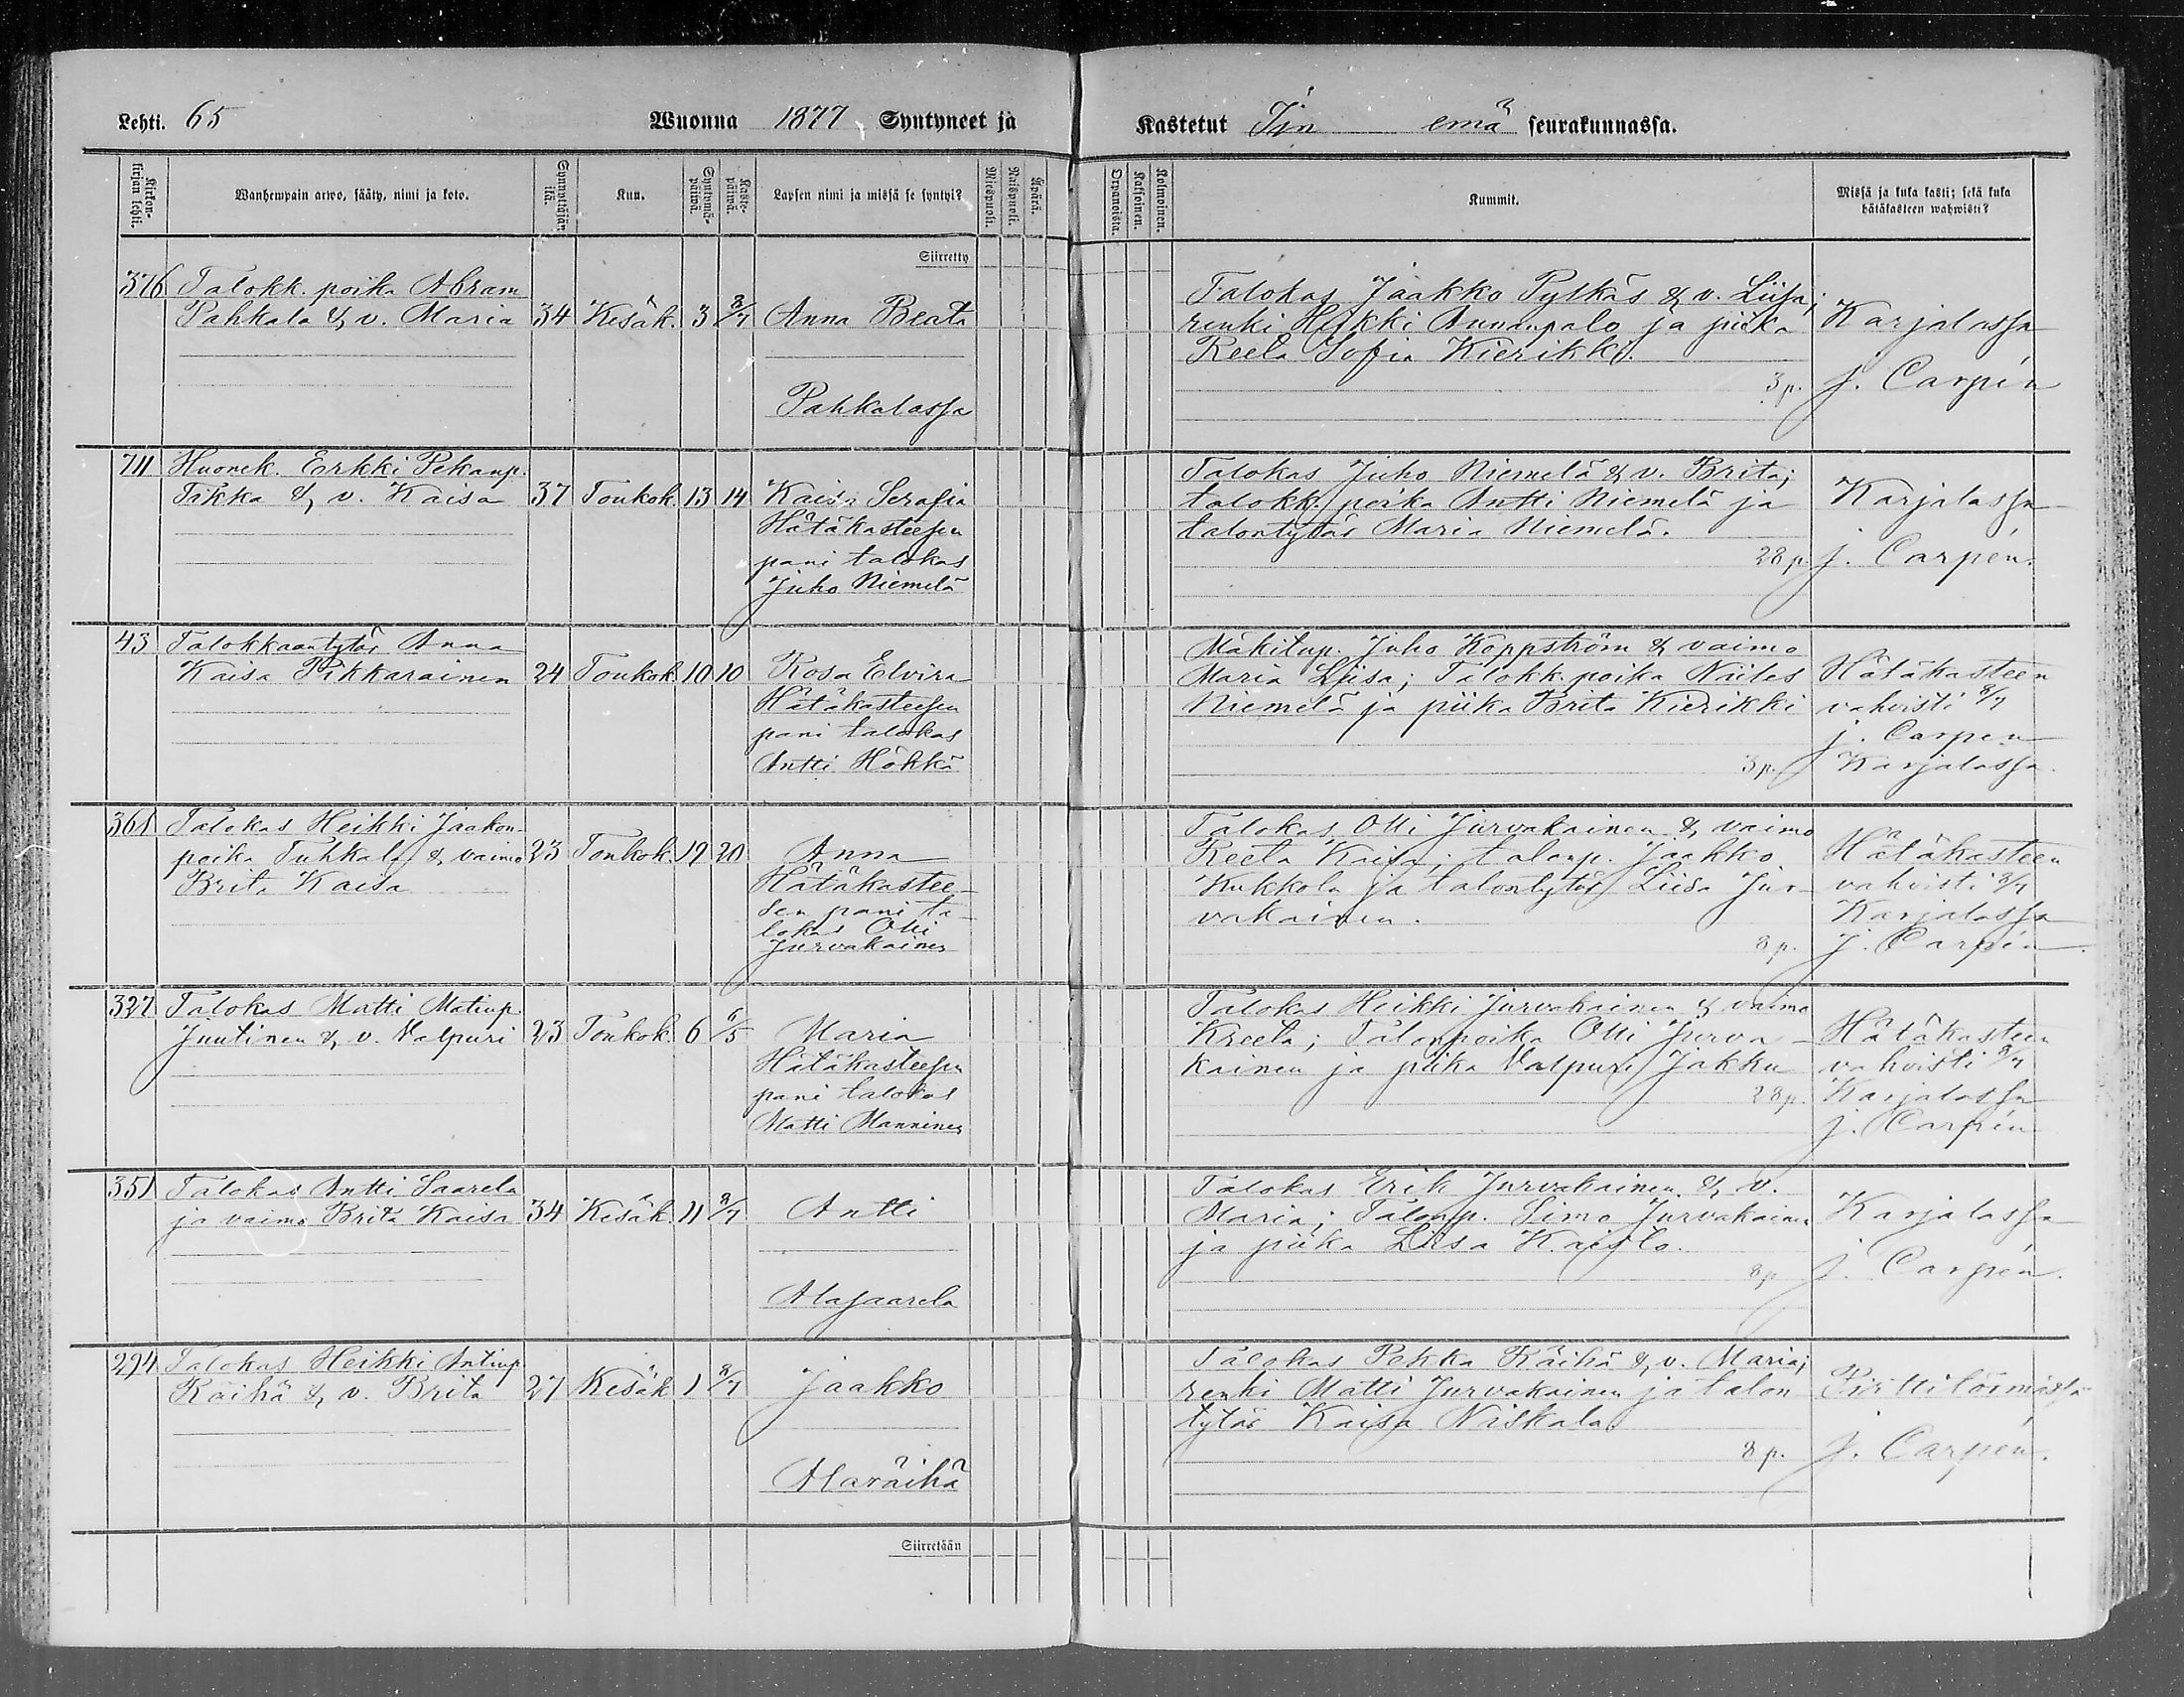 Lehti. 65
Wuonna 1877 Syntyneet ja
Kastetut Iin emä seurakunnassa.
Kirkon-kirjan lehti.
Wanhempain arwo, sääty, nimi ja koto.
Synnyttäjän ikä.
Kuu.
Syntymä-päivä.
Kaste-päivä.
Lapsen nimi ja missä se syntyi?
Miespuoli.
Naispuoli.
Äpärä.
Orpanoista.
Kaksoinen.
Kolmoinen.
Kummit.
Missä ja kuka kasti; sekä kuka
hätäkasteen wahwisti?
Siirretty
376 Talokk. poika Abram
Pahkala & v. Maria 34 Kesäk. 3 8/7 Anna Beata
Pahkalassa
Talokas Jaakko Pytkäs & v. Liisa;
renki Heikki Annanpalo ja piika
Reeta Sofia Kierikki.
3 p.
Karjalassa
J. Carpén
711 Huonek. Erkki Pekanp.
Tikka & v. Kaisa 37 Toukok. 13 14 Kaisa Serafia
Hätäkasteesen
pani talokas
Juho Niemelä
Talokas Juho Niemelä & v. Brita;
talokk. poika Antti Niemelä ja
talontytär Maria Niemelä.
28 p.
Karjalassa
J. Carpén.
43 Talokkaantytär Anna
Kaisa Pikkarainen 24 Toukok. 10 10 Rosa Elvira
Hätäkasteesen
pani talokas
Antti Hökkä
Mäkitup. Juho Koppström & vaimo
Maria Liisa; Talokk. poika Niiles
Niemelä ja piika Brita Kierikki
3 p.
Hätäkasteen
vahvisti 8/7
J. Carpén
Karjalassa.
361 Talokas Heikki Jaakon-
poika Tuhkala & vaimo 23 Toukok. 19 20 Anna
Brita Kaisa
Hätäkastee-
sen pani ta-
lokas Olli
Jurvakainen
Talokas Olli Jurvakainen & vaimo
Reeta Kaisa; talonp. Jaakko
Kukkola ja talontytär Liisa Jur-
vakainen.
8 p.
Hätäkasteen
vahvisti 8/7
Karjalassa
J. Carpén.
327 Talokas Matti Matinp.
Juutinen & v. Valpuri 23 Toukok. 6 6/5 Maria
Hätäkasteesen
pani talokas
Matti Manninen
Talokas Heikki Jurvakainen & vaimo
Kreeta; Talonpoika Olli Jurva-
kainen ja piika Valpuri Jakku
28 p.
Hätäkasteen
vahvisti 8/7
Karjalassa
J. Carpén
351 Talokas Antti Saarela
ja vaimo Brita Kaisa 34 Kesäk. 11 8/7 Antti
Alasaarela
Talokas Erik Jurvakainen & v.
Maria; Talonp. Simo Jurvakainen
ja piika Liisa Kaisto.
8 p
Karjalassa
J. Carpén.
294 Talokas Heikki Antinp
Räihä & v. Brita 27 Kesäk 1 8/7 Jaakko
Alaräihä
Talokas Pekka Räihä & v. Maria;
renki Matti Jurvakainen ja talon
tytär Kaisa Niskala.
8 p.
J. Carpén.
Siirretään